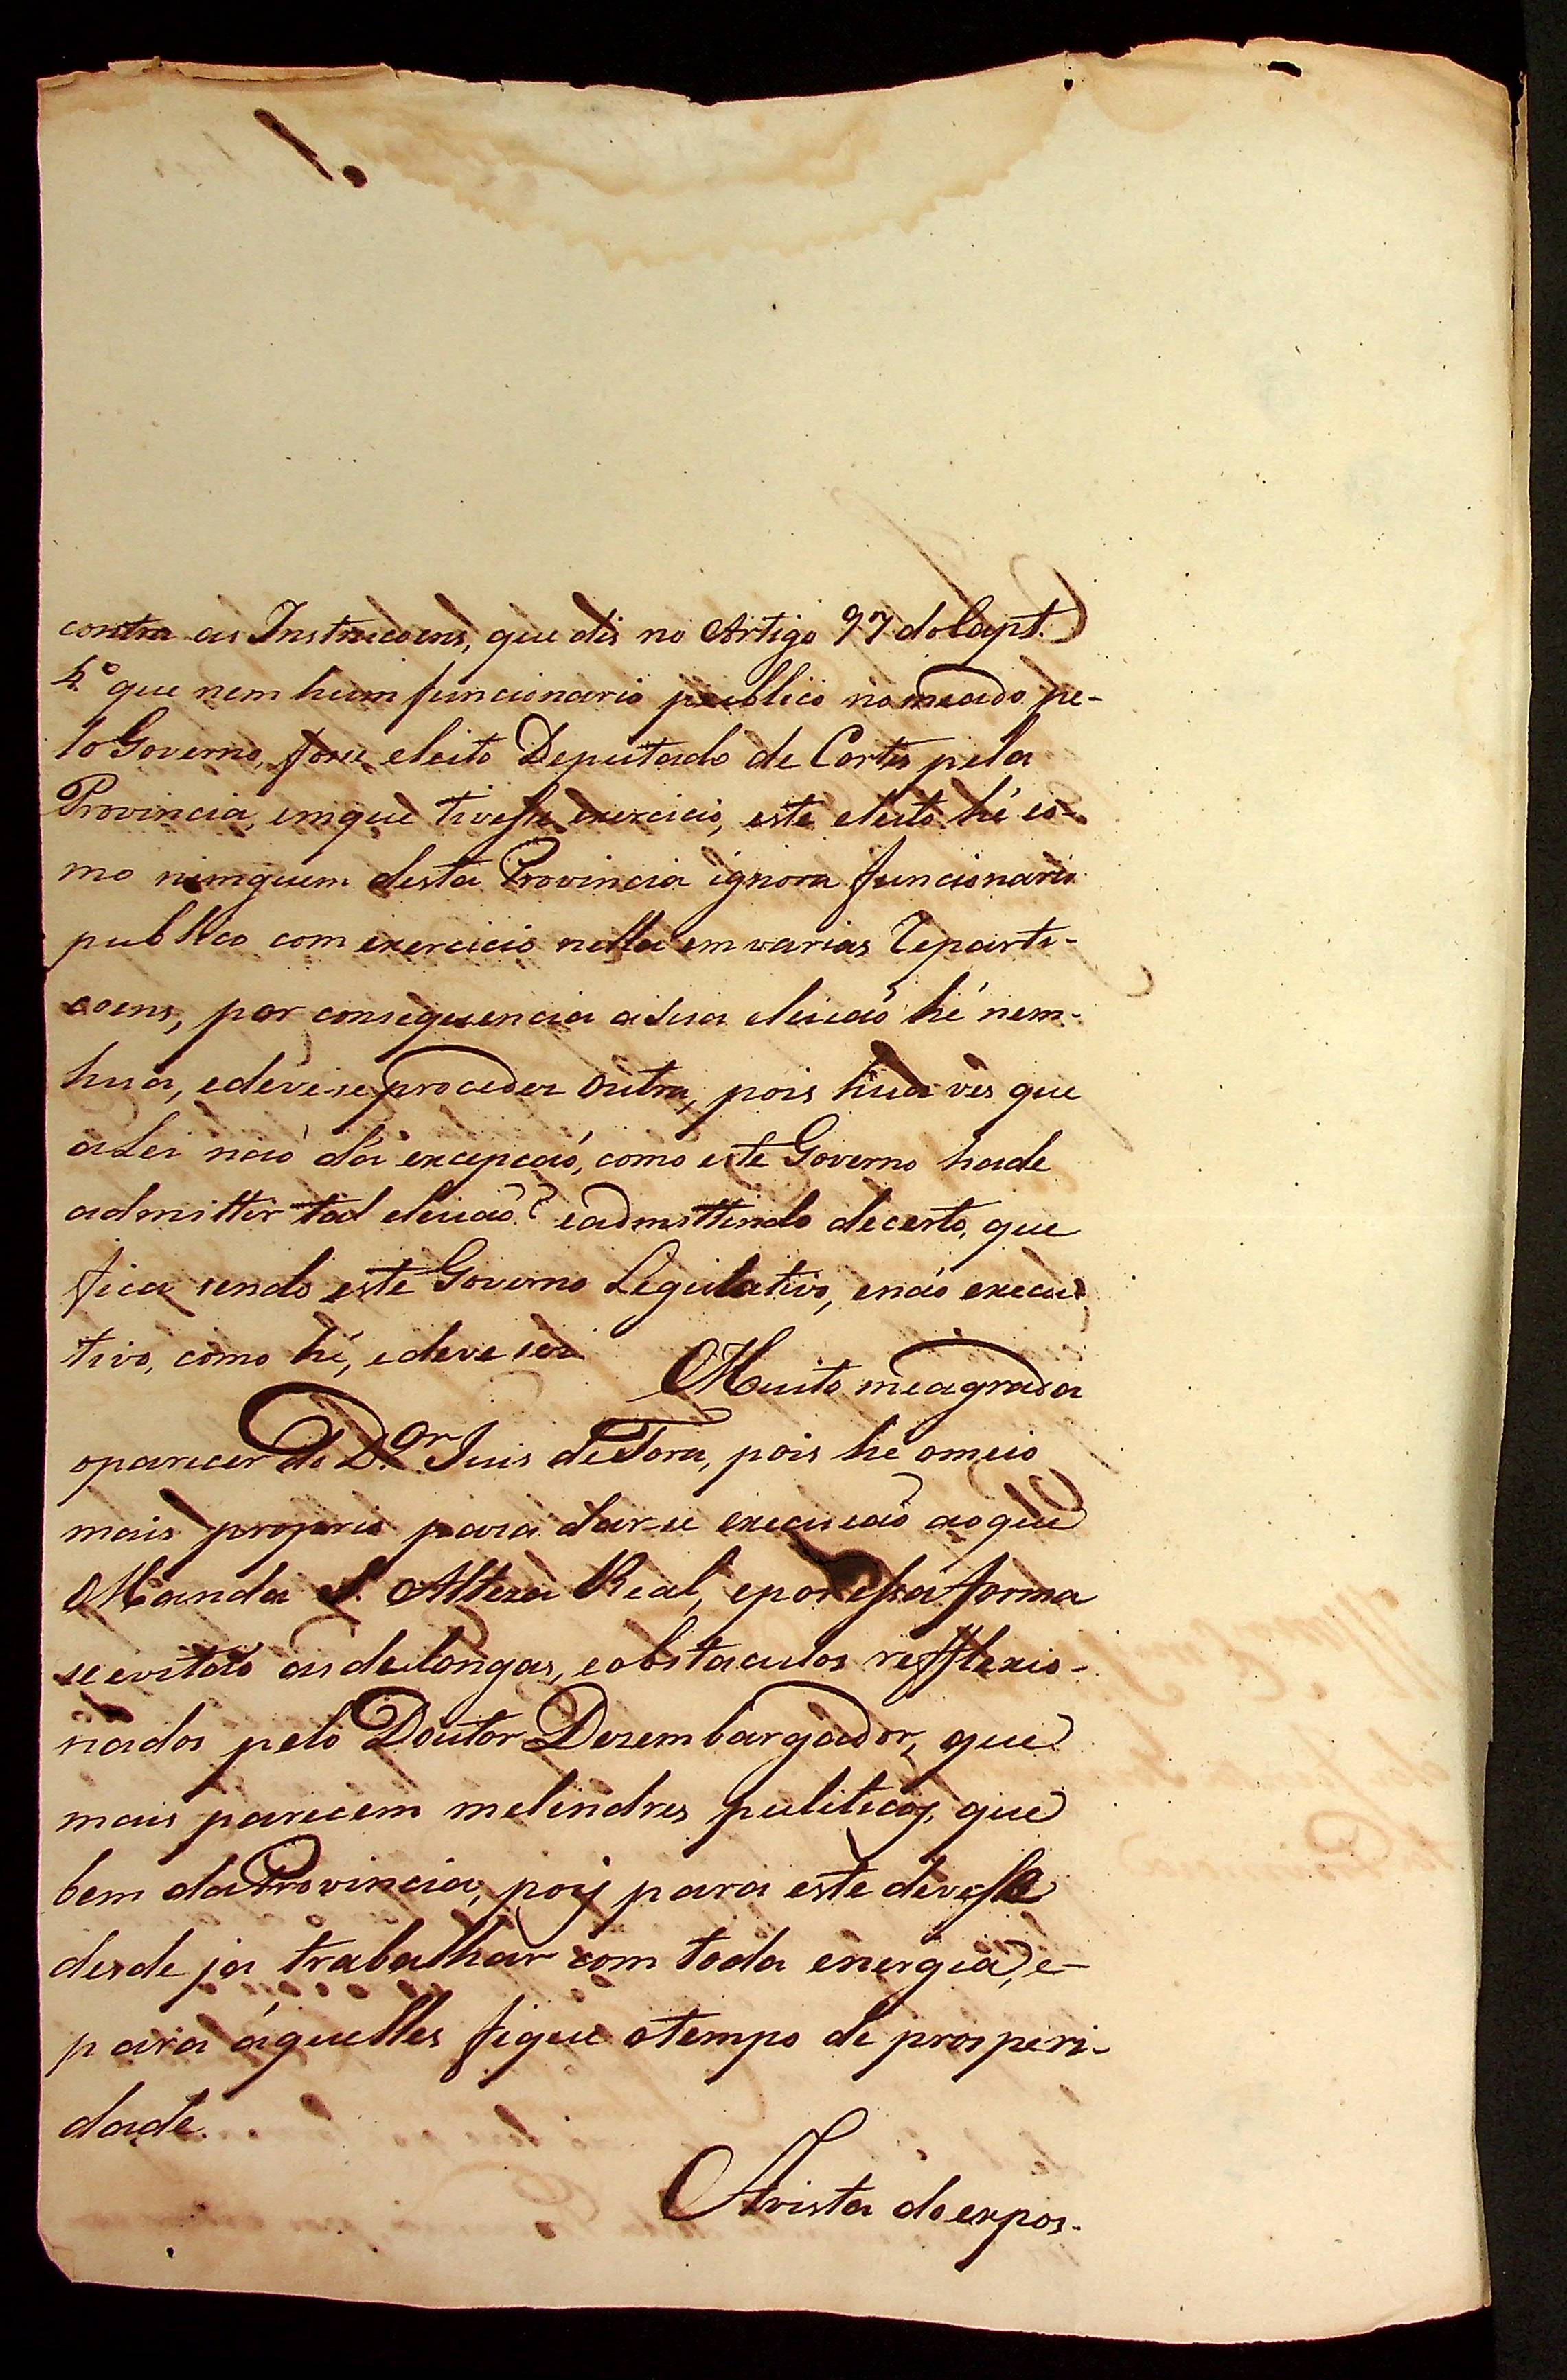 contra as Instrucoens, que dis no Artigo 97 do Capt.
4.º que nem hum funcionario publico nomeado pe-
lo Governo, fosse eleito Deputado de Cortes pela
Provincia, emque tivesse exercicio, este eleito hé co-
mo nimguem desta Provincia ignora funcionario
publico com exercicio nella em varias Reparti-
coens, por consequencia asua eleicaõ hé nem-
hua, edevese proceder outra, pois hua ves que
aLei naõ dá excepcaõ, como este Governo hade
admittir tal eleicaõ? eadmittindo decerto, que
fica sendo este Governo Legislativo, enaõ execu-
tivo, como hé, edeve ser
Muito meagrada
oparecer do D.or Juis deFora, pois hé omeio
mais proprio para dar-se execucaõ aoque
Manda S. Alteza Real, epor essa forma
seevitaõ asdelongas, eobstaculos refflexio-
nados pelo Doutor Dezembargador, que
mais parecem melindres puliticos, que
bem daProvincia, pois para este devesse
desde ja trabalhar com toda energia, e
para áquelles fique otempo de prosperi-
dade.
Avista doexpos-